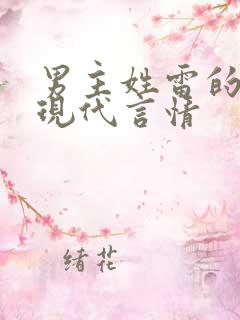 男主姓雷的
現代言情
緒花